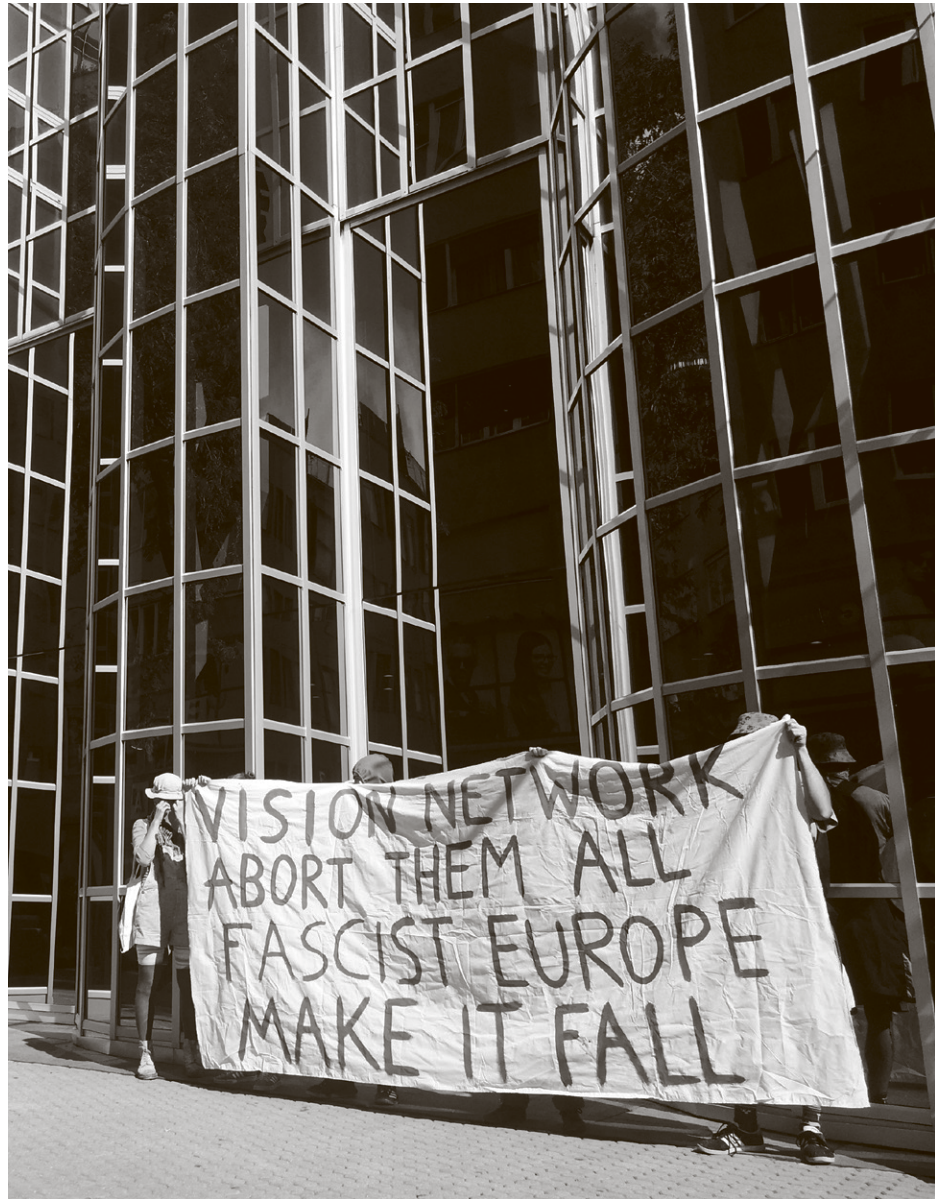 VISION NETWORK
ABORT THEM ALL
FASCIST EUROPE
MAKE IT FALL